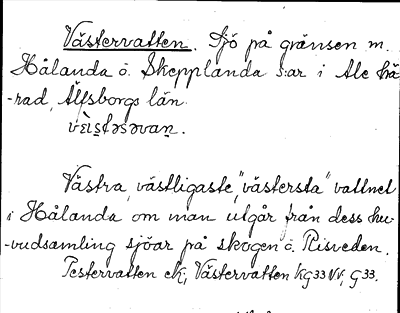 Västervatten. Sjö på gränsen m.
Hålanda o. Skepplanda s:ar i Ale hä-
-rad, Älfsborgs län.
vɛ̀is̱təsəvaṉ.
Västra, västligaste, "västersta" vattnet
i Hålanda om man utgår från dess hu-
-vudsamling sjöar på skogen o. Risveden.
Testervatten ek, Västervatten KG33 VV, G33.